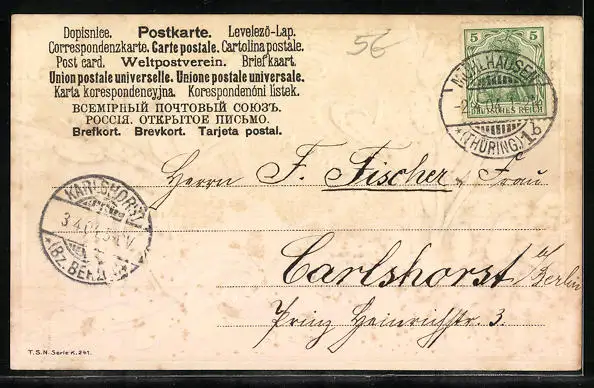 Dopisnice. Postkarte. Levelező-Lap.
Correspondenzkarte. Carte postale. Cartolina postale.
Post card. Weltpostverein. Briefkaart.
Union postale universelle. Unione postale universale.
Karta korespondencyjna. Korespondenční lístek.
ВСЕМІРНЫЙ ПОЧТОВЫЙ СОЮЗЪ.
РОССІЯ. ОТКРЫТОЕ ПИСЬМО.
Brefkort. Brevkort. Tarjeta postal.
56
5 5
DEUTSCHES REICH
MÜHLHAUSEN
*(THÜRING.) 1b
Herrn F. Fischer & Frau
KARLSHORST
3.4.04
*(BZ. BERLIN)
Carlshorst b/Berlin
Prinz Heinrichstr 3.
T.S.N. Serie K. 241.